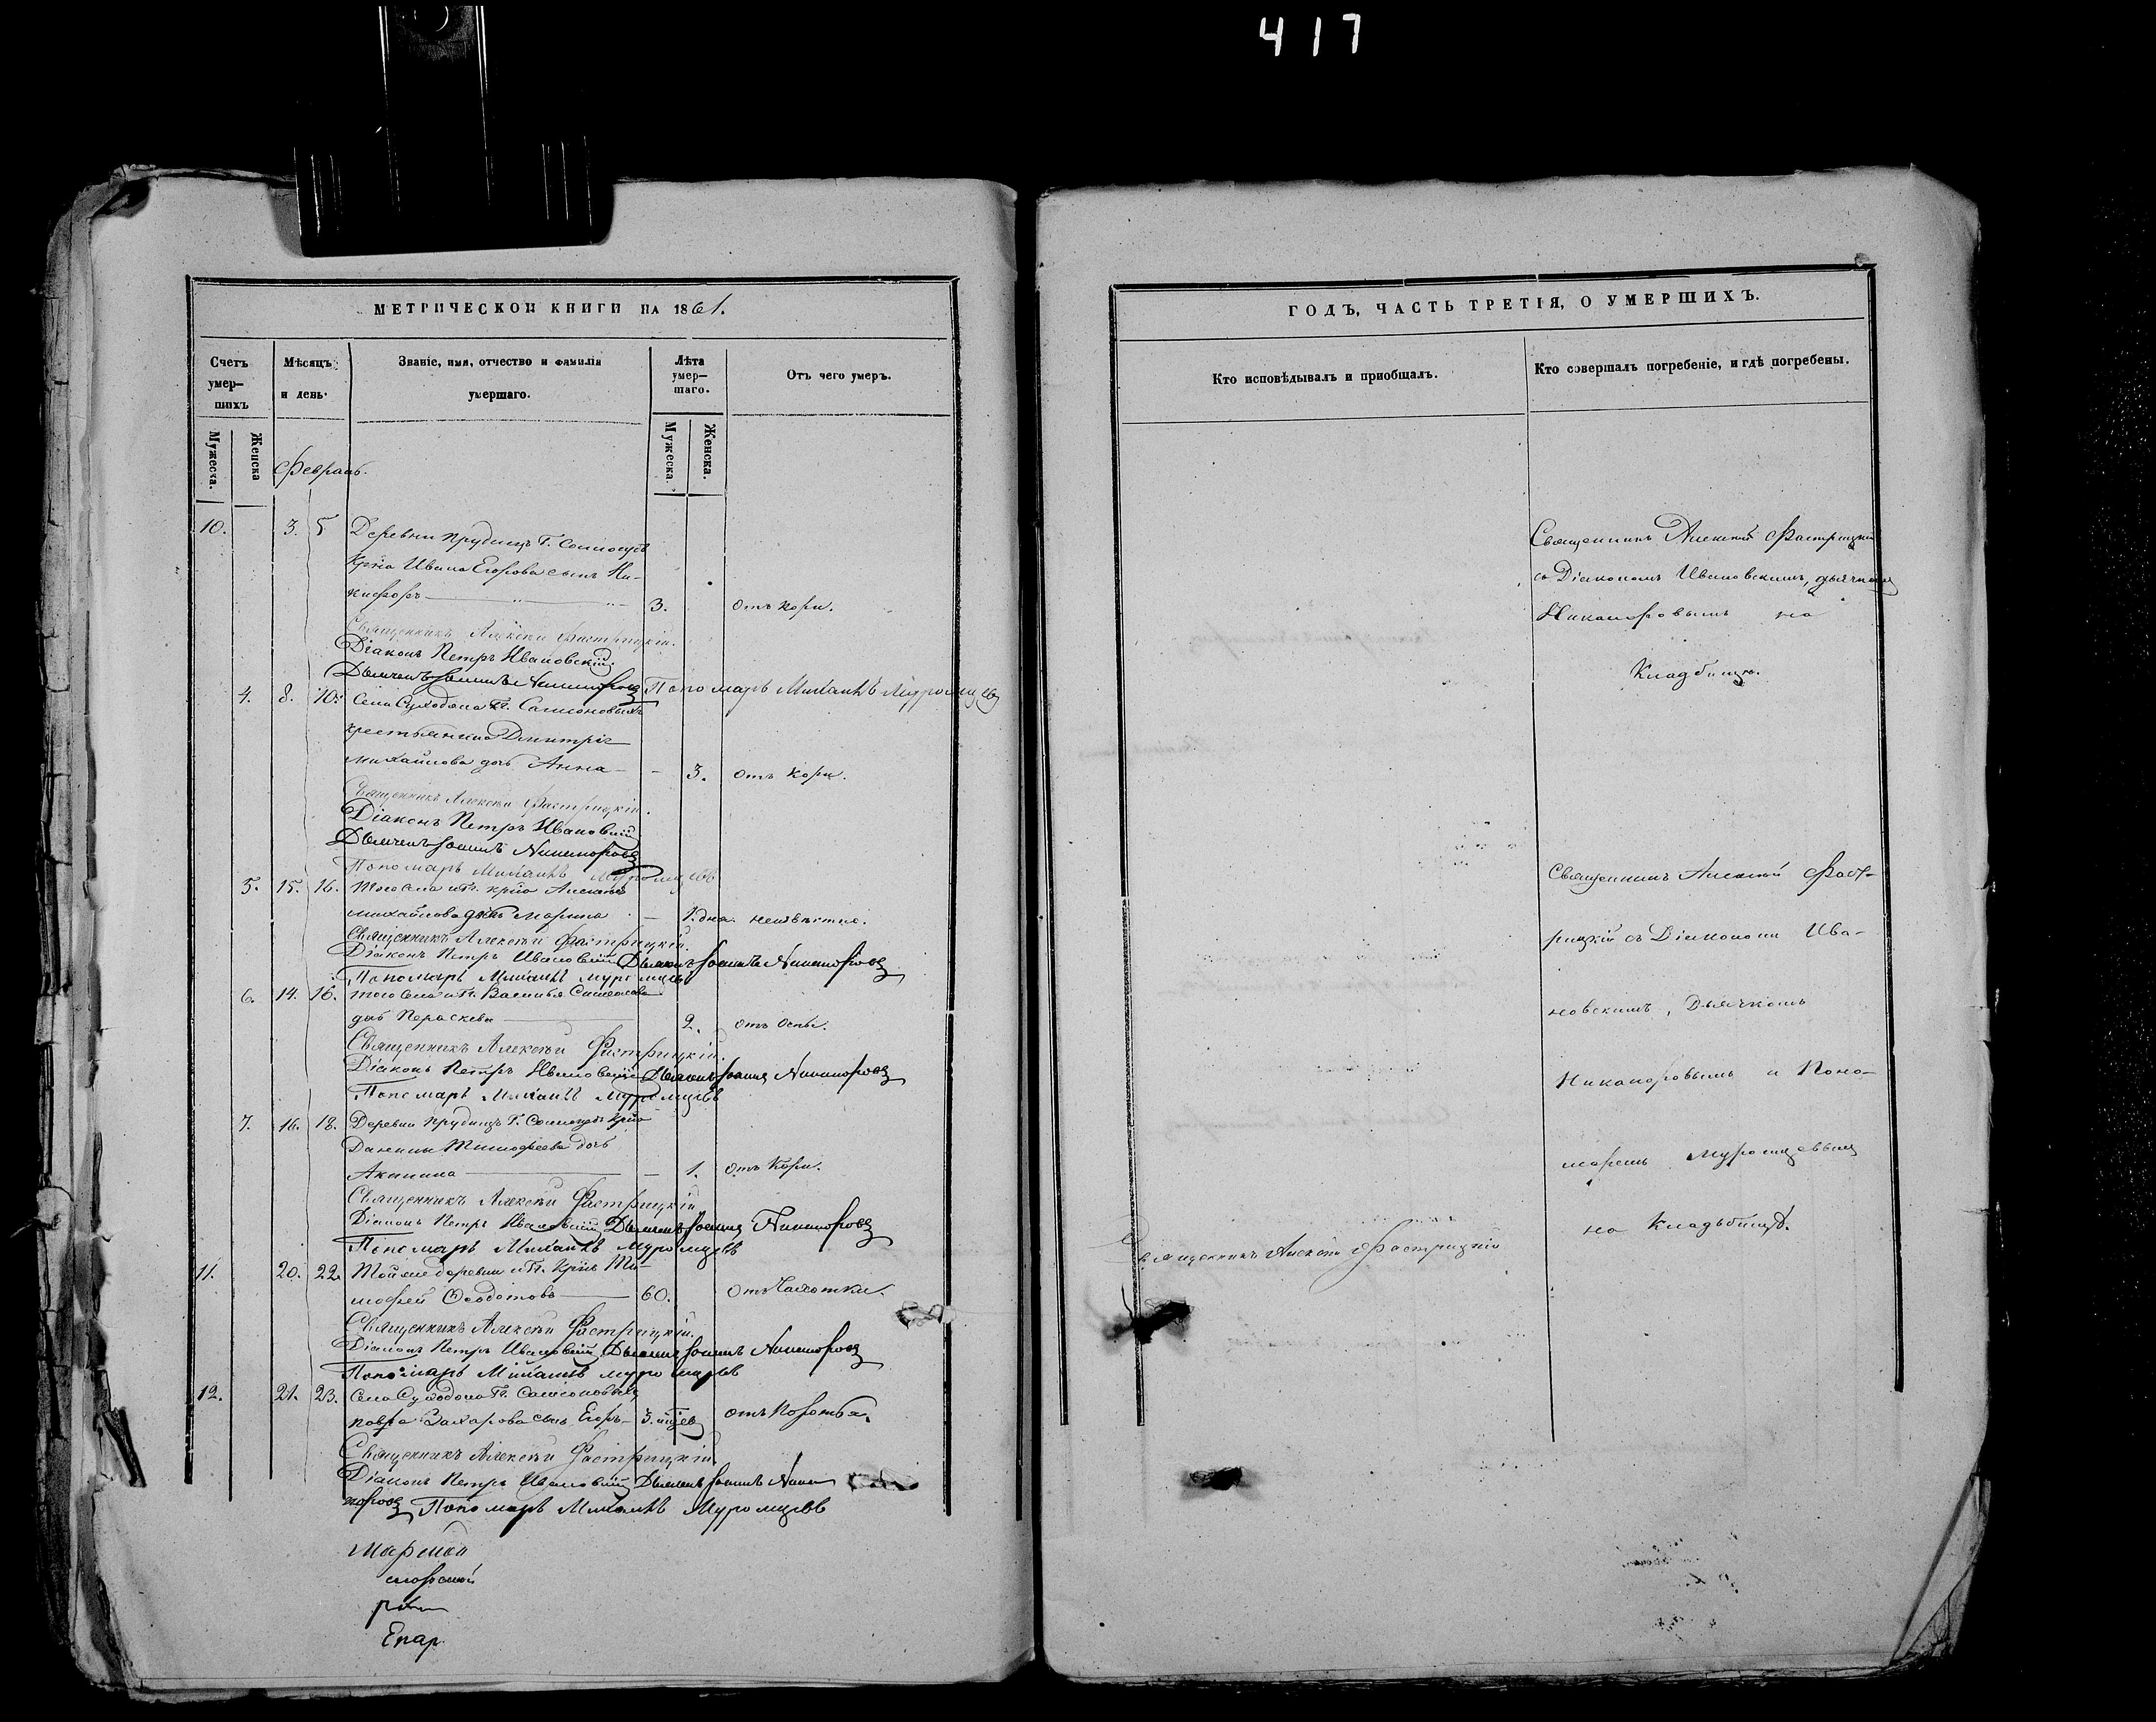 417
МЕТРИЧЕСКОЙ КНИГИ НА 1861.
Счетъ умер-шихъ
Мѣсяцъ и день.
Званіе, имя, отчество и фамилія умершаго.
Лѣта умер-шаго.
Отъ чего умеръ.
Мужеска.
Женска
Мужеска.
Женска.
Февраль.
10. 3. 5 Деревни Прудищъ Г.
Ивана Егорова сынъ Ни-
кифоръ 3. отъ кори.
Священникъ Алексѣй Фастрицкій.
Діаконъ Петръ Ивановскій.
Дьячекъ Іоаннъ Никаноровъ Пономарь Михаилъ Муромцевъ
4. 8. 10. Села Суходола Гг. Самсоновыхъ
крестьянина Дмитрія
Михайлова дочь Анна 3. отъ кори.
Священникъ Алексѣй Фастрицкій.
Діаконъ Петръ Ивановскій
Дьячекъ Іоаннъ Никаноровъ
Пономарь Михаилъ Муромцевъ
5. 15. 16. Того села и Гг.
Михайлова дочь Марина 1. дня. неизвѣстно.
Священникъ Алексѣй Фастрицкій.
Діаконъ Петръ Ивановскій Дьячекъ Іоаннъ Никаноровъ
Пономарь Михаилъ Муромцевъ
6. 14. 16. Того села и Гг. Василья
дочь Параскева 2. отъ оспы.
Священникъ Алексѣй Фастрицкій.
Діаконъ Петръ Ивановскій Дьячекъ Іоаннъ Никаноровъ
Пономарь Михаилъ Муромцевъ
7. 16. 18. Деревни Прудищъ Г.
Данилы Тимофеева дочь
Акилина 1. отъ кори.
Священникъ Алексѣй Фастрицкій
Діаконъ Петръ Ивановскій Дьячекъ Іоаннъ Никаноровъ
Пономарь Михаилъ Муромцевъ
11. 20. 22. Той же деревни и Гг. Ти-
мофей Ѳеодотовъ 60. отъ чахотки.
Священникъ Алексѣй Фастрицкій.
Діаконъ Петръ Ивановскій Дьячекъ Іоаннъ Никаноровъ
Пономарь Михаилъ Муромцевъ
12. 21. 23. Села Суходола Гг. Самсоновыхъ
Захарова сынъ Егоръ 3. отъ
Священникъ Алексѣй Фастрицкій
Діаконъ Петръ Ивановскій Дьячекъ Іоаннъ Ника
норовъ Пономарь Михаилъ Муромцевъ
Епар
ГОДЪ, ЧАСТЬ ТРЕТІЯ, О УМЕРШИХЪ.
Кто исповѣдывалъ и пріобщалъ.
Кто совершалъ погребеніе, и гдѣ погребены.
Священникъ Алексѣй Фастрицкій
съ Діакономъ Ивановскимъ, дьячкомъ
Никаноровымъ на
Кладбищѣ.
Священникъ Алексѣй Фаст-
рицкій съ Діакономъ Ива-
новскимъ, Дьячкомъ
Никаноровымъ и Поно-
маремъ Муромцевымъ
на Кладбищѣ.
Священникъ Алексѣй Фастрицкій